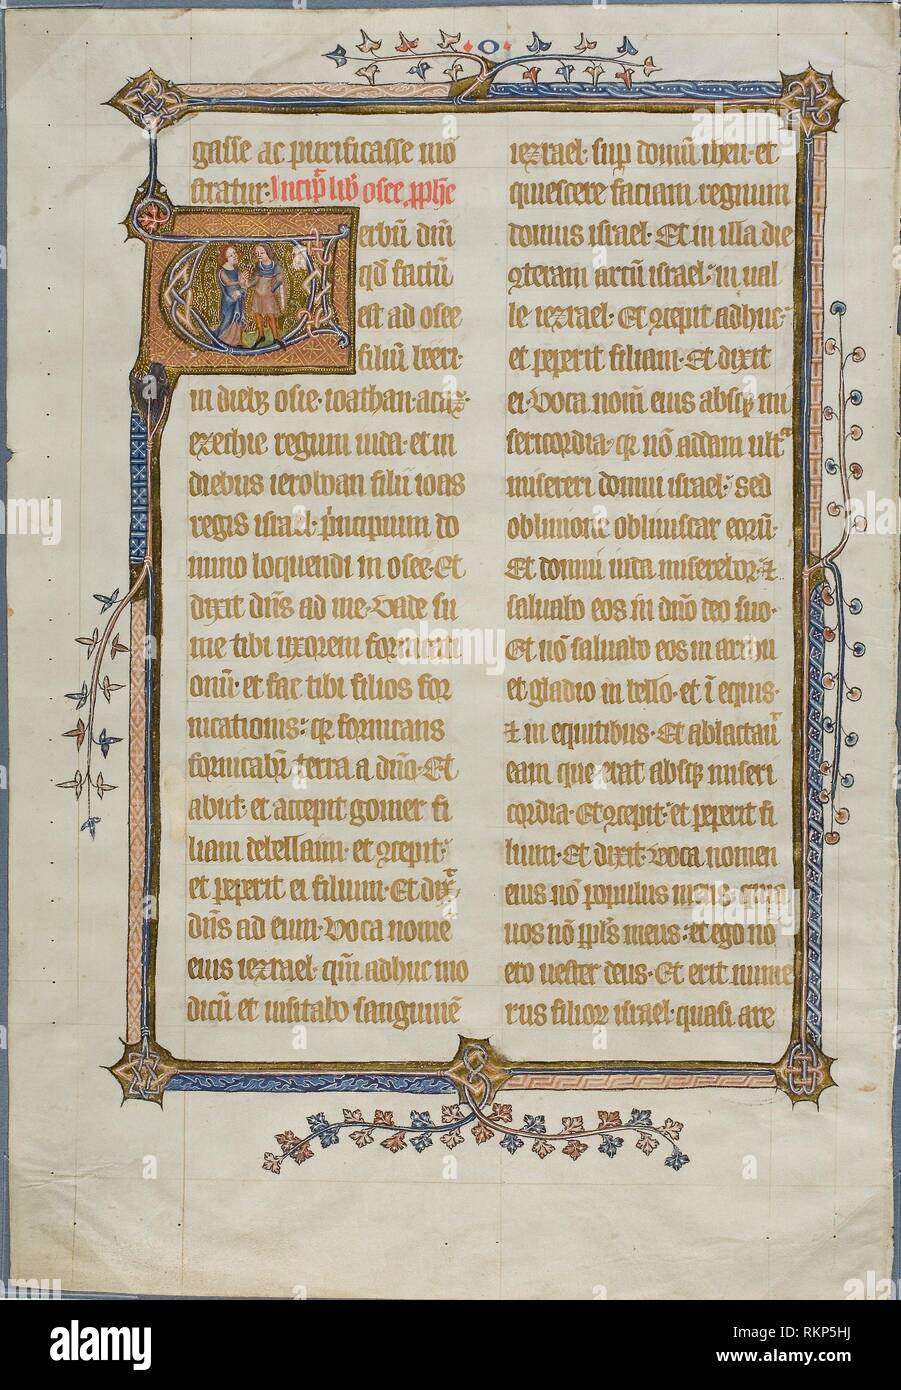 o
gasse ac purificasse mo
stratur. Incip̅ lib̅ osee pp̅he
Verbū dn̅i
qd̅ factū
est ad osee
filiū beeri.
in dieb; osie. ioathan. acaz.
ezechie regum iuda. et in
diebus ieroboan filii ioas
regis israel. principium do
mino loquendi in osee. Et
dixit dn̅s ad me. Vade su
me tibi uxorem fornicati
onū. et fac tibi filios for
nicationis: qr fornicans
fornicabr̅ terra a dn̅o. Et
abiit. et accepit gomer fi
liam debelaim. et ꝯcepit.
et peperit ei filium. Et dix̅
dn̅s ad eum. Voca nomē
eius iezrael. qm̅ adhuc mo
dicū et uisitabo sanguinē
iezrael. sup̅ domū iheu. et
quiescere faciam regnum
domus israel. Et in illa die
ꝯteram arcū israel: in ual
le iezrael. Et ꝯcepit adhuc.
et peperit filiam. Et dixit
ei. Voca nom̅ eius absq; mi
sericordia. qr nō addam ult̅
misereri domui israel: sed
obliuione obliuiscar eorū.
Et domui iuda miserebor. et
saluabo eos in dn̅o deo suo.
Et nō saluabo eos in archu
et gladio in bello. et ī equis.
et in equitibus. Et ablactau̅
eam que erat absq; miseri
cordia. Et ꝯcepit. et peperit fi
lium. Et dixit. Voca nomen
eius nō populus meus. quia
uos nō ppl̅s meus: et ego nō
ero uester deus. Et erit nume
rus filior̅ israel. quasi are
alamy
Image ID: RKP5HJ
www.alamy.com